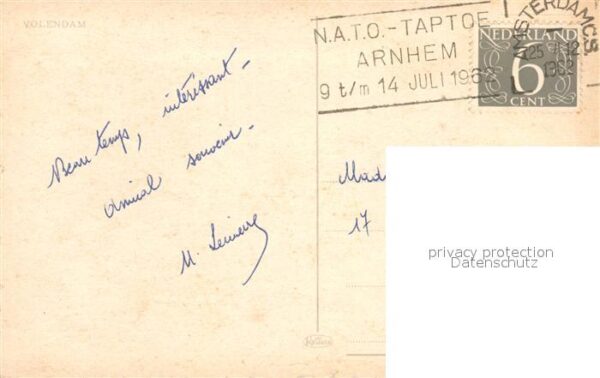 VOLENDAM
N.A.T.O.-TAPTOE
ARNHEM
9 t/m 14 JULI 196
AMSTERDAM C.S.
1962
NEDERLAND
6
CENT
Beau temps, intéressant -
amical souvenir -
M.
Mad
17
privacy protection
Datenschutz